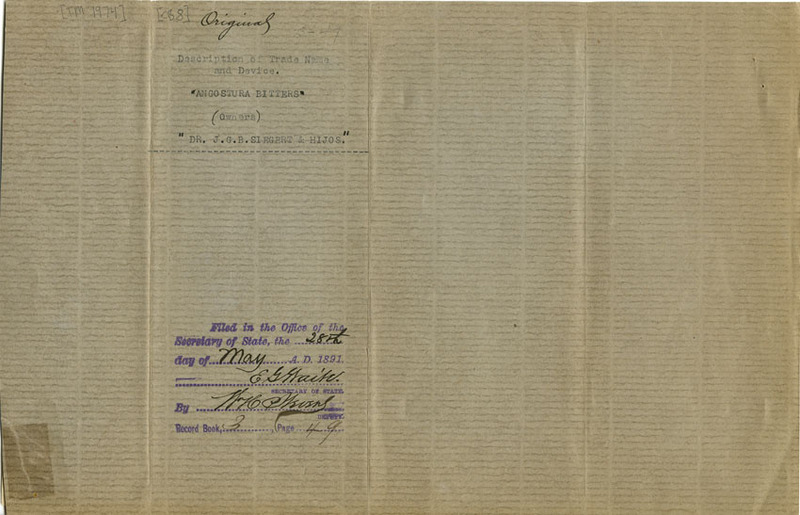 [TM 1974]
[868]
Original
Description of Trade Name
and Device.
"ANGOSTURA BITTERS"
(Owners)
"DR. J.G.B.SIEGERT & HIJOS."
Filed in the Office of the
Secretary of State, the 28th
day of May A. D. 1891.
E G Waite.
SECRETARY OF STATE.
By
DEPUTY.
Record Book, 3, Page 49